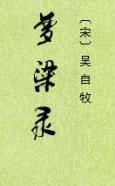 〔宋〕吴自牧
梦粱录